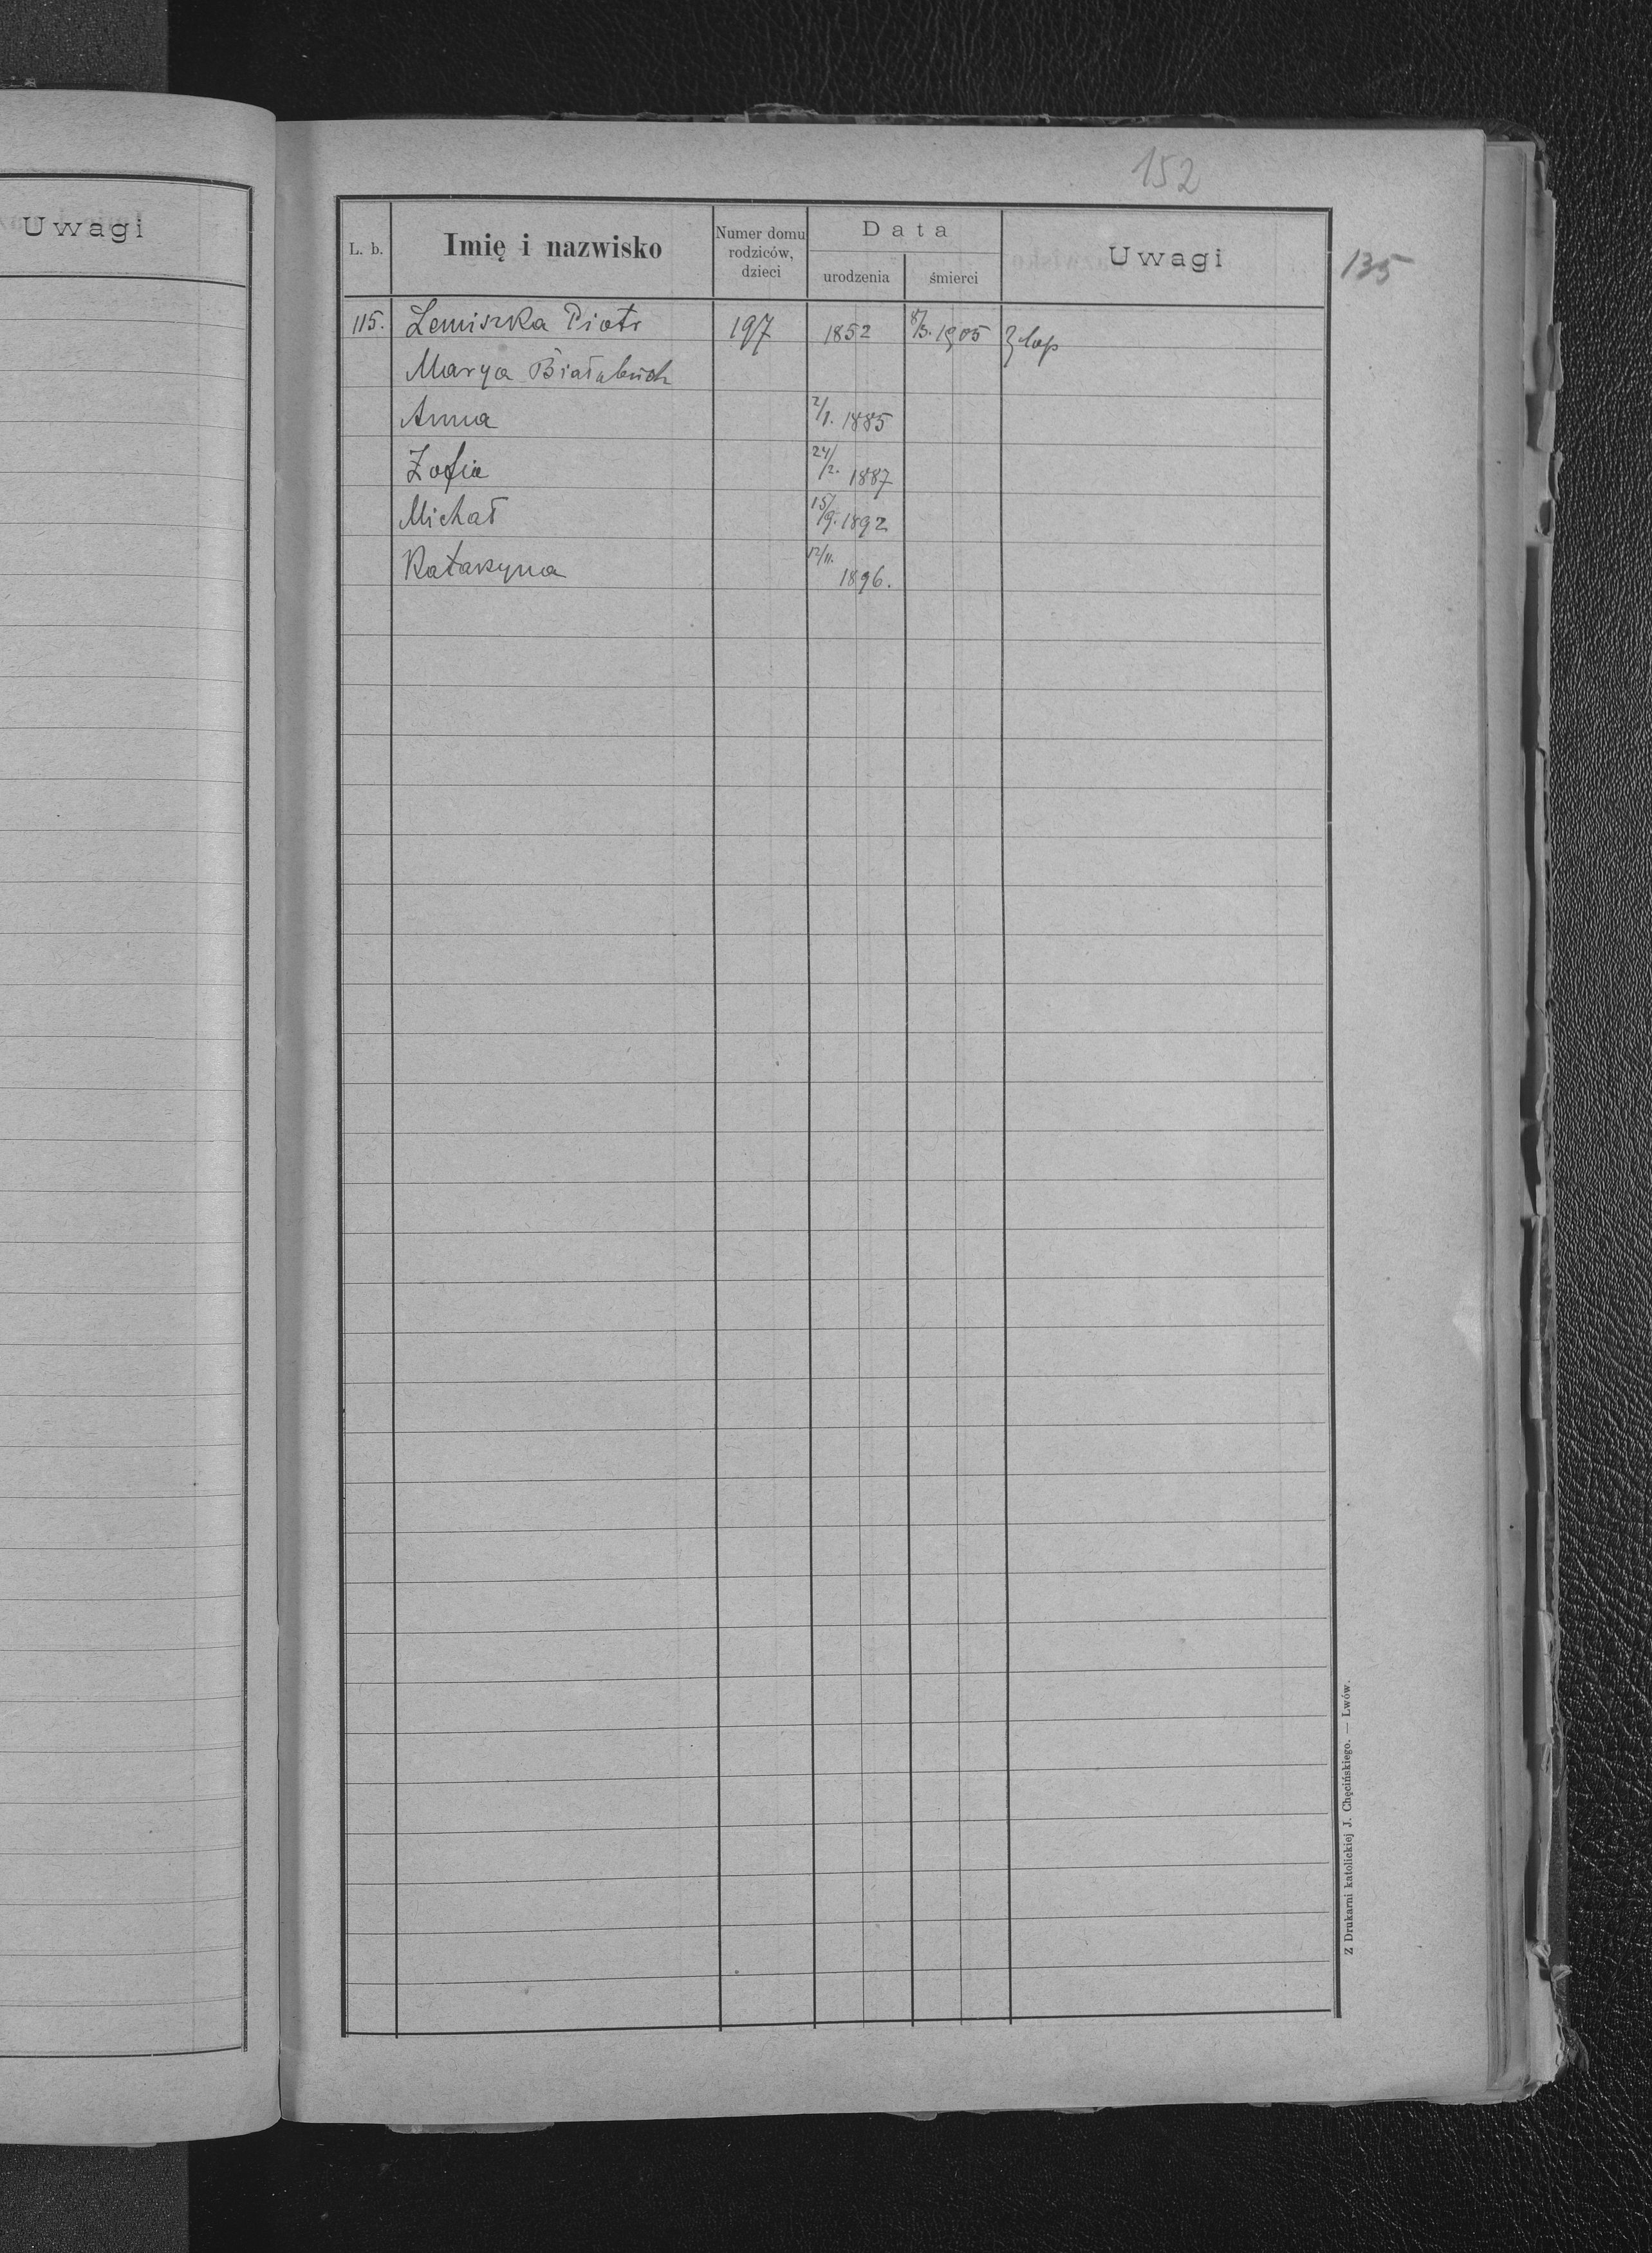 Uwagi
152
L. b.
Imię i nazwisko
Numer domu rodziców, dzieci
Data
urodzenia
śmierci
Uwagi
135
115. Lemiszka Piotr 197 1852 8/3. 1905
Marya
Anna 2/1. 1885
Zofia 24/2. 1887
Michał 15/9. 1892
Katarzyna 12/11. 1896.
Z Drukarni katolickiej J. Chęcińskiego. — Lwów.